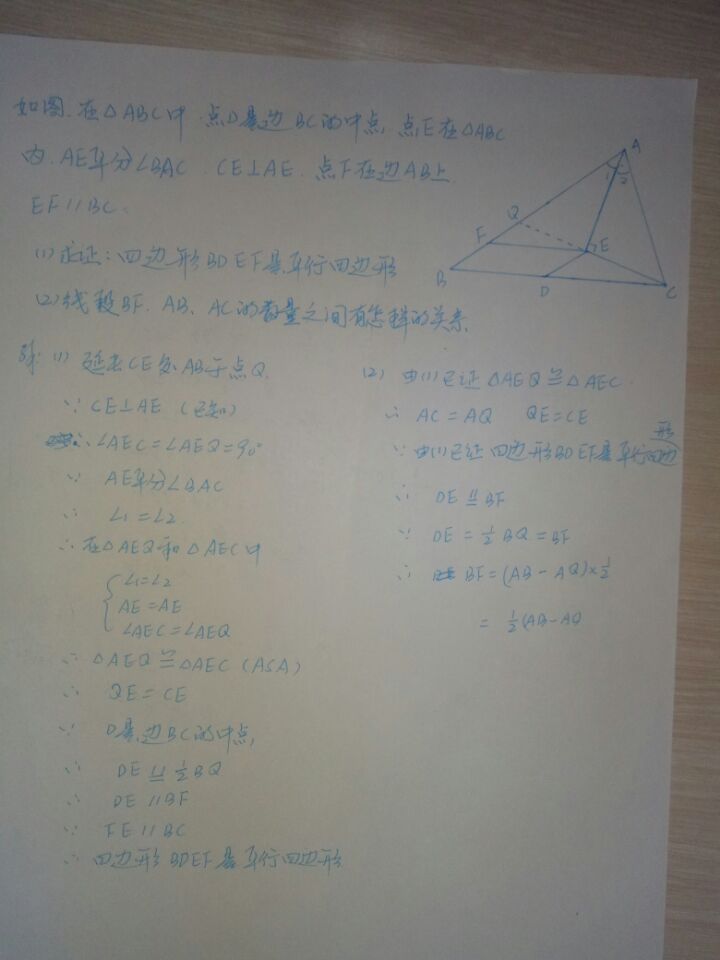 如图.在△ABC中.点D是边BC的中点,点E在△ABC
内.AE平分∠BAC.CE⊥AE.点F在边AB上
EF∥BC.
(1)求证:四边形BDEF是平行四边形
(2)线段BF、AB、AC的数量之间有怎样的关系.
A
1 2
Q
F
E
B
D
C
解:(1)延长CE交AB于点Q.
∵CE⊥AE(已知)
∴∠AEC=∠AEQ=90°
∵AE平分∠BAC
∴∠1=∠2.
∴在△AEQ和△AEC中
∠1=∠2
AE=AE
∠AEC=∠AEQ
∴△AEQ≌△AEC(ASA)
∴QE=CE
∵D是边BC的中点,
∴DE∥=½BQ
∴DE∥BF
∵FE∥BC
∴四边形BDEF是平行四边形
(2)由(1)已证△AEQ≌△AEC.
∴AC=AQ QE=CE
∵由(1)已证四边形BDEF是平行四边形
∴DE∥=BF
∵DE=½BQ=BF
∴BF=(AB-AQ)×½
=½(AB-AC)